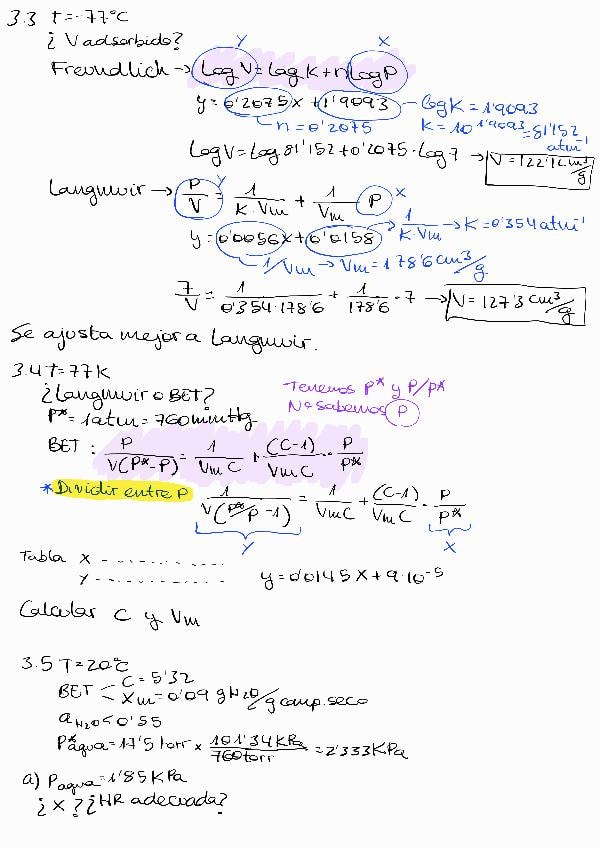 3.3 t=-77°C
¿Vadsorbido?
y x
Freundlich → LogV=LogK+nLogP
y=0'2075x+1'9093 → logK=1'9093
n=0'2075 K=10^1'9093=81'152 atm^-1
LogV=Log81'152+0'2075·Log7 → V=122'12 cm³/g
Langmuir → P/V = 1/(K·Vm) + 1/Vm P
y x
y=0'0056x+0'0158 → 1/(K·Vm) → K=0'354atm^-1
1/Vm → Vm=178'6 cm³/g
7/V = 1/(0'354·178'6) + 1/178'6 ·7 → V=127'3 cm³/g
Se ajusta mejor a Langmuir.
3.4 T=77K
¿Langmuir o BET?
Tenemos P* y P/P*
No sabemos P
P*=1atm=760mmHg
BET: P/(V(P*-P)) = 1/(VmC) + (C-1)/(VmC) · P/P*
*Dividir entre P 1/(V(P*/P-1)) = 1/(VmC) + (C-1)/(VmC) · P/P*
y x
Tabla x ----------
y ---------- y=0'0145x+9·10^-5
Calcular C y Vm
3.5 T=20°C
BET < C=5'32
Xm=0'09 gH2O/g comp.seco
aH2O<0'55
P*agua=17'5 torr × 101'34KPa/760torr =2'333KPa
a) Pagua=1'85KPa
¿X? ¿HR adecuada?